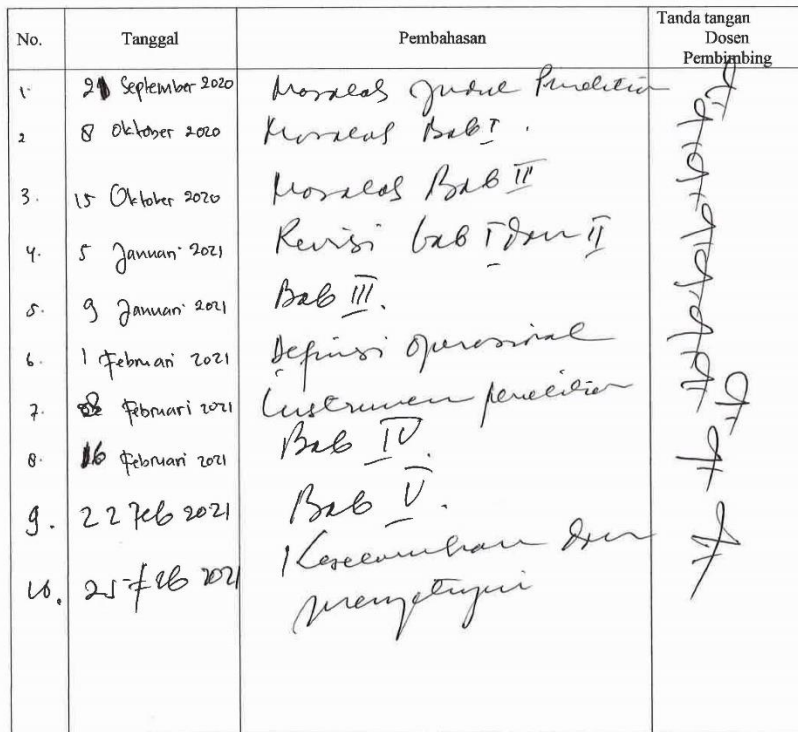 No. Tanggal Pembahasan Tanda tangan
Dosen
Pembimbing
1. 21 September 2020 Masalah Judul Penelitian
2 8 Oktober 2020 Masalah Bab I.
3. 15 Oktober 2020 Masalah Bab II
4. 5 Januari 2021 Revisi bab I dan II
5. 9 Januari 2021 Bab III.
6. 1 Februari 2021 Definisi operasional
7. Februari 2021 Instrumen penelitian
8. 16 Februari 2021 Bab IV.
9. 22 Feb 2021 Bab V.
10. 25 Feb 2021 Keseluruhan dan
menyetujui